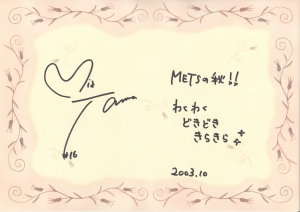 METSの秋!!
わくわく
どきどき
きらきら
2003.10
#16